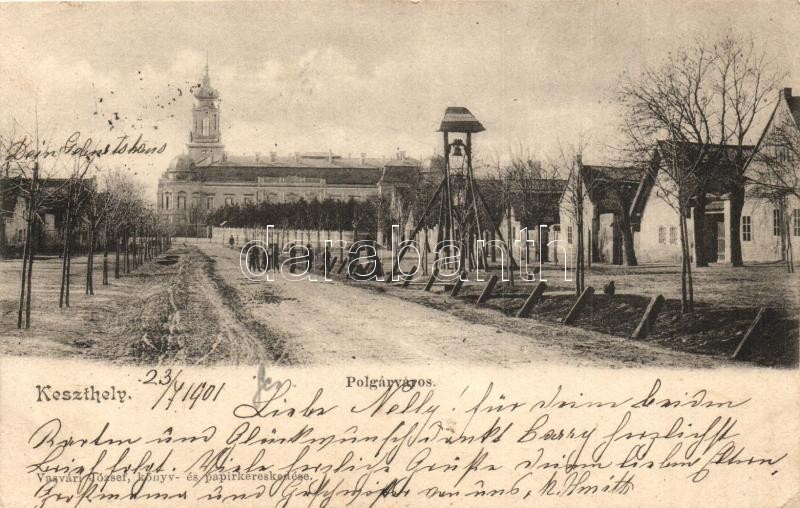 Dein Geburtshaus
darabanth
Keszthely. 23/7 1901
Polgárváros.
Liebe Nelly! für deine beiden
Karten und Glückwünsche dankt Barry herzlichst
Brief folgt. Viele herzliche Grüße deinen lieben Eltern
Vasvári József, könyv- és papirkereskedése.
Großmama und Geschwister von uns,